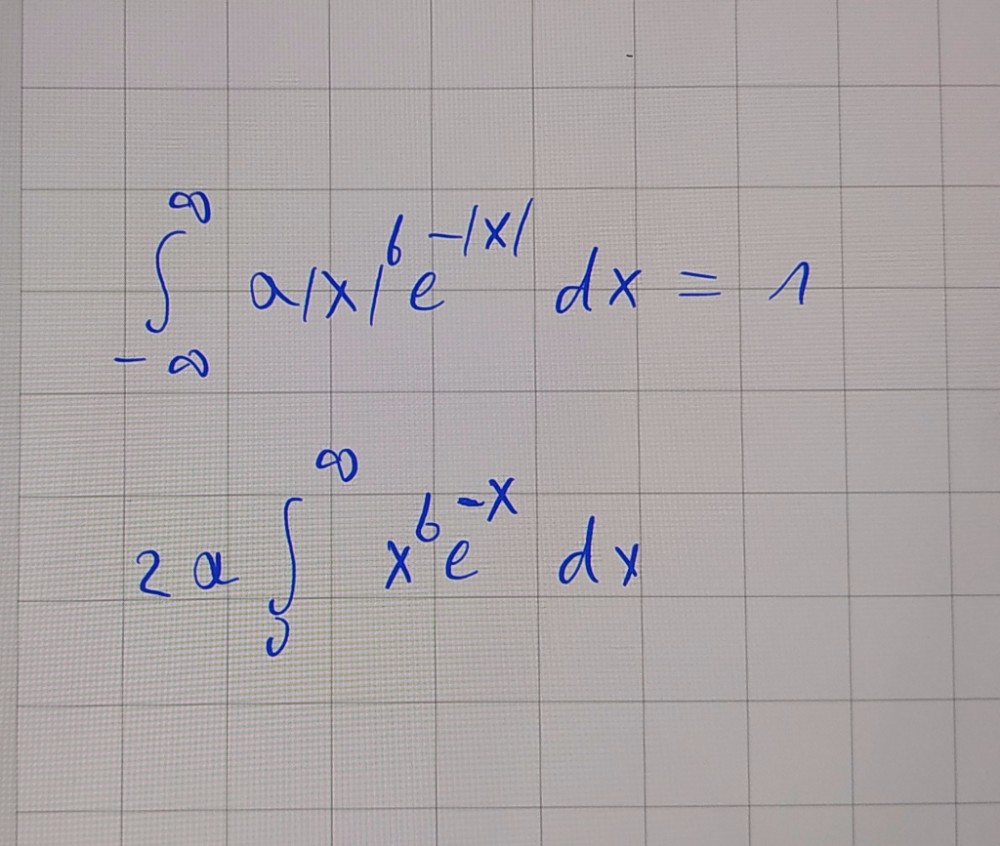 ∫_{-∞}^{∞} a|x|^b e^{-|x|} dx = 1
2a ∫_0^∞ x^b e^{-x} dx